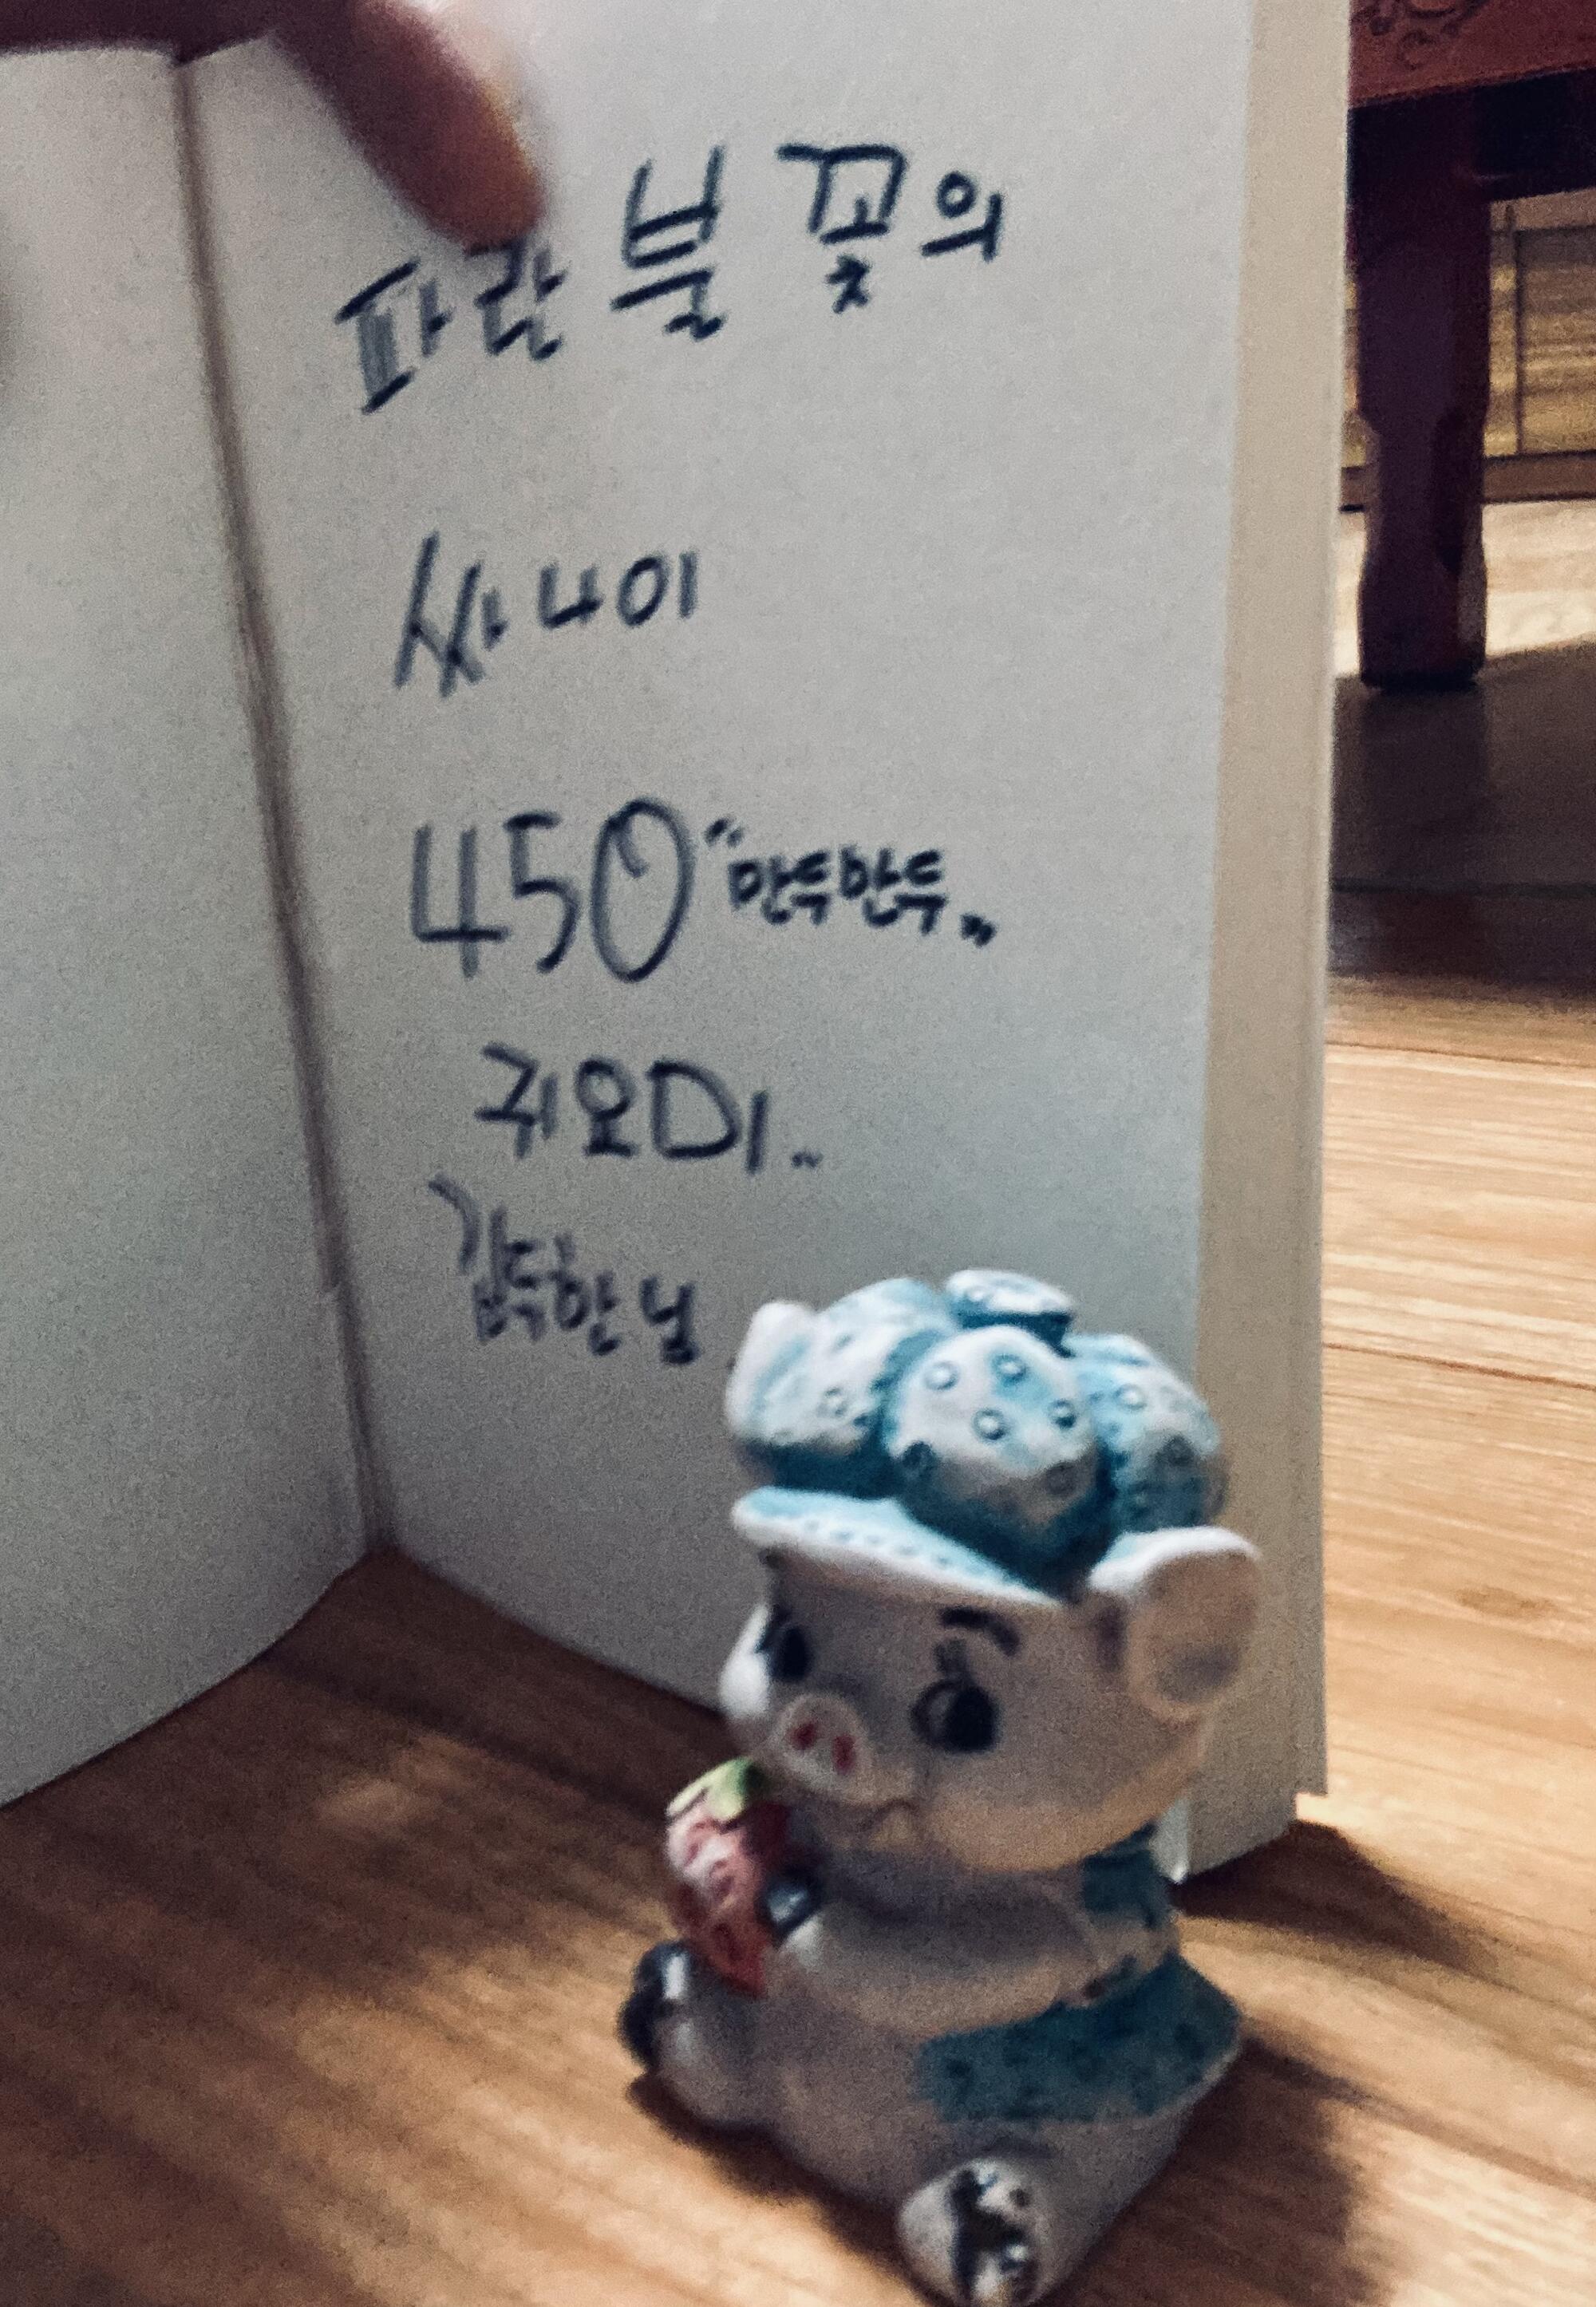 파란 불꽃의
싸나이
450 "만두만두"
귀요미..
감독한 님